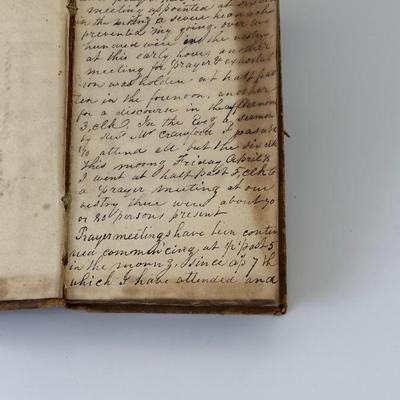 meeting appointed at
in the morng a severe headache
prevented my going, over two
hundred were in the vestry,
at this early hour, another
meeting for Prayer & exhorta
tion was holden at half past
ten in the forenoon, another
for a discourse in the afternoon
3, clk? In the Eveg a sermon
by Revr Mr Crawford
to attend all but the six clk
This morng Friday, April 8
I went at half past 5, clk to
a Prayer meeting at our
vestry there were about 70
or 80 persons present
Prayer meetings have been contin
ued commencing, at ½ past 5
in the morng, since ap 7th
which I have attended and